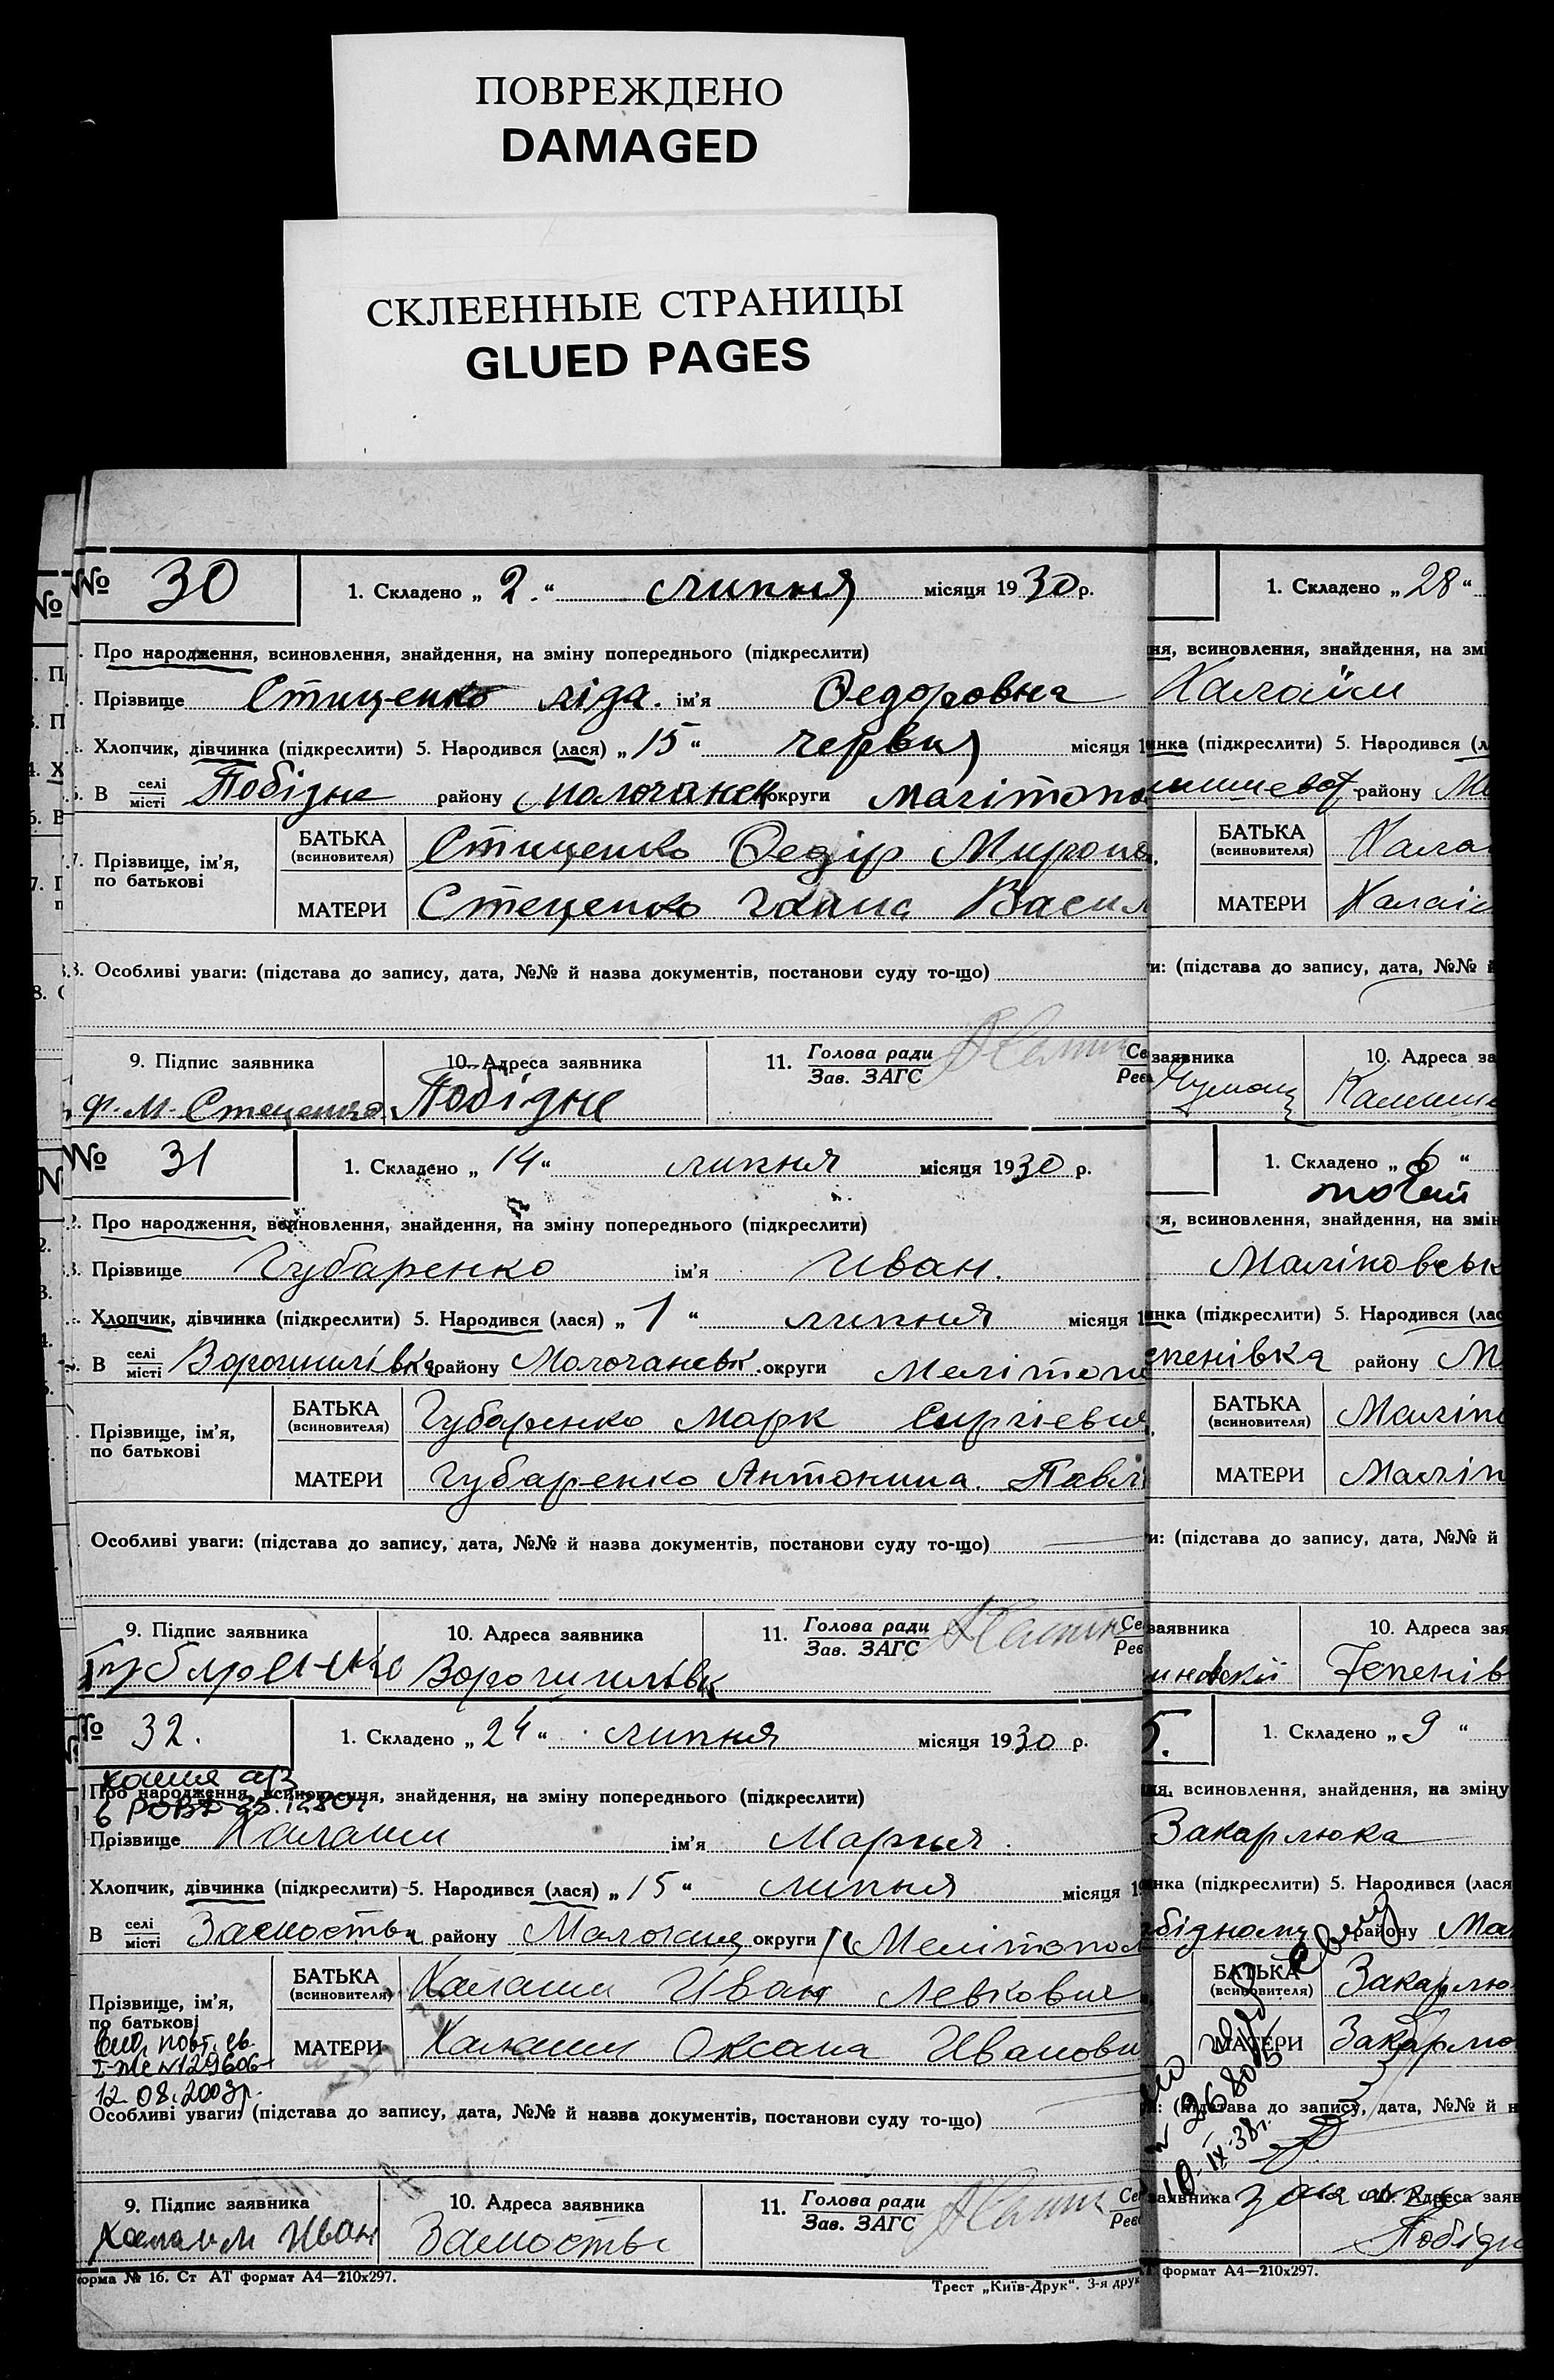 ПОВРЕЖДЕНО
DAMAGED
СКЛЕЕННЫЕ СТРАНИЦЫ
GLUED PAGES
№ 30
1. Складено „ 2. “ липня місяця 1930 р.
Про народження, всиновлення, знайдення, на зміну попереднього (підкреслити)
Прізвище Стиценко Ліда. ім'я Федоровна
Хлопчик, дівчинка (підкреслити) 5. Народився (лася) „ 15 “ червня місяця 1
В селі місті Побідне району Молочанськ округи Мелітопо
7. Прізвище, ім'я, по батькові
БАТЬКА (всиновителя) Стиценко Федір Миронов
МАТЕРИ Стеценко Ганна Васил
8. Особливі уваги: (підстава до запису, дата, №№ й назва документів, постанови суду то-що)
9. Підпис заявника
10. Адреса заявника
11. Голова ради
Зав. ЗАГС
Ф. М. Стеценко
Побідне
№ 31
1. Складено „ 14 “ липня місяця 1930 р.
2. Про народження, всиновлення, знайдення, на зміну попереднього (підкреслити)
3. Прізвище Губаренко ім'я Иван.
Хлопчик, дівчинка (підкреслити) 5. Народився (лася) „ 1 “ липня місяця 1
В селі місті Ворошилівка району Молочанськ округи Мелітопо
Прізвище, ім'я, по батькові
БАТЬКА (всиновителя) Губаренко Марк Сиргієвич
МАТЕРИ Губаренко Антонина. Павл
Особливі уваги: (підстава до запису, дата, №№ й назва документів, постанови суду то-що)
9. Підпис заявника
10. Адреса заявника
11. Голова ради
Зав. ЗАГС
Губаренко
Ворошилівк
№ 32.
1. Складено „ 24 “ липня місяця 1930 р.
Про народження, всиновлення, знайдення, на зміну попереднього (підкреслити)
Прізвище Калаши ім'я Марыя.
Хлопчик, дівчинка (підкреслити) 5. Народився (лася) „ 15 “ липня місяця 1
В селі місті Замость району Молочан округи Мелітопол
Прізвище, ім'я, по батькові
БАТЬКА (всиновителя) Калаши Иван Левкович
МАТЕРИ Калаши Оксана Ивановн
12.08.2003р.
Особливі уваги: (підстава до запису, дата, №№ й назва документів, постанови суду то-що)
9. Підпис заявника
10. Адреса заявника
11. Голова ради
Зав. ЗАГС
Иван
Замость
форма № 16. Ст АТ формат А4—210х297.
Трест „Київ-Друк“. 3-я друк
1. Складено „ 28 “
ня, всиновлення, знайдення, на змі
инка (підкреслити) 5. Народився (л
району
БАТЬКА (всиновителя)
МАТЕРИ
и: (підстава до запису, дата, №№ й
заявника
10. Адреса за
1. Складено „ 6 “
я, всиновлення, знайдення, на змін
Маліновськ
инка (підкреслити) 5. Народився (лас
району М
БАТЬКА (всиновителя) Маліно
МАТЕРИ Малін
и: (підстава до запису, дата, №№ й
заявника
10. Адреса зая
5.
1. Складено „ 9 “
ня, всиновлення, знайдення, на зміну
Закарлюка
инка (підкреслити) 5. Народився (лася
бідному району Мол
БАТЬКА (всиновителя) Закарлю
МАТЕРИ Закарлю
и: (підстава до запису, дата, №№ й н
заявника
10. Адреса заяв
Побідн
формат А4—210х297.